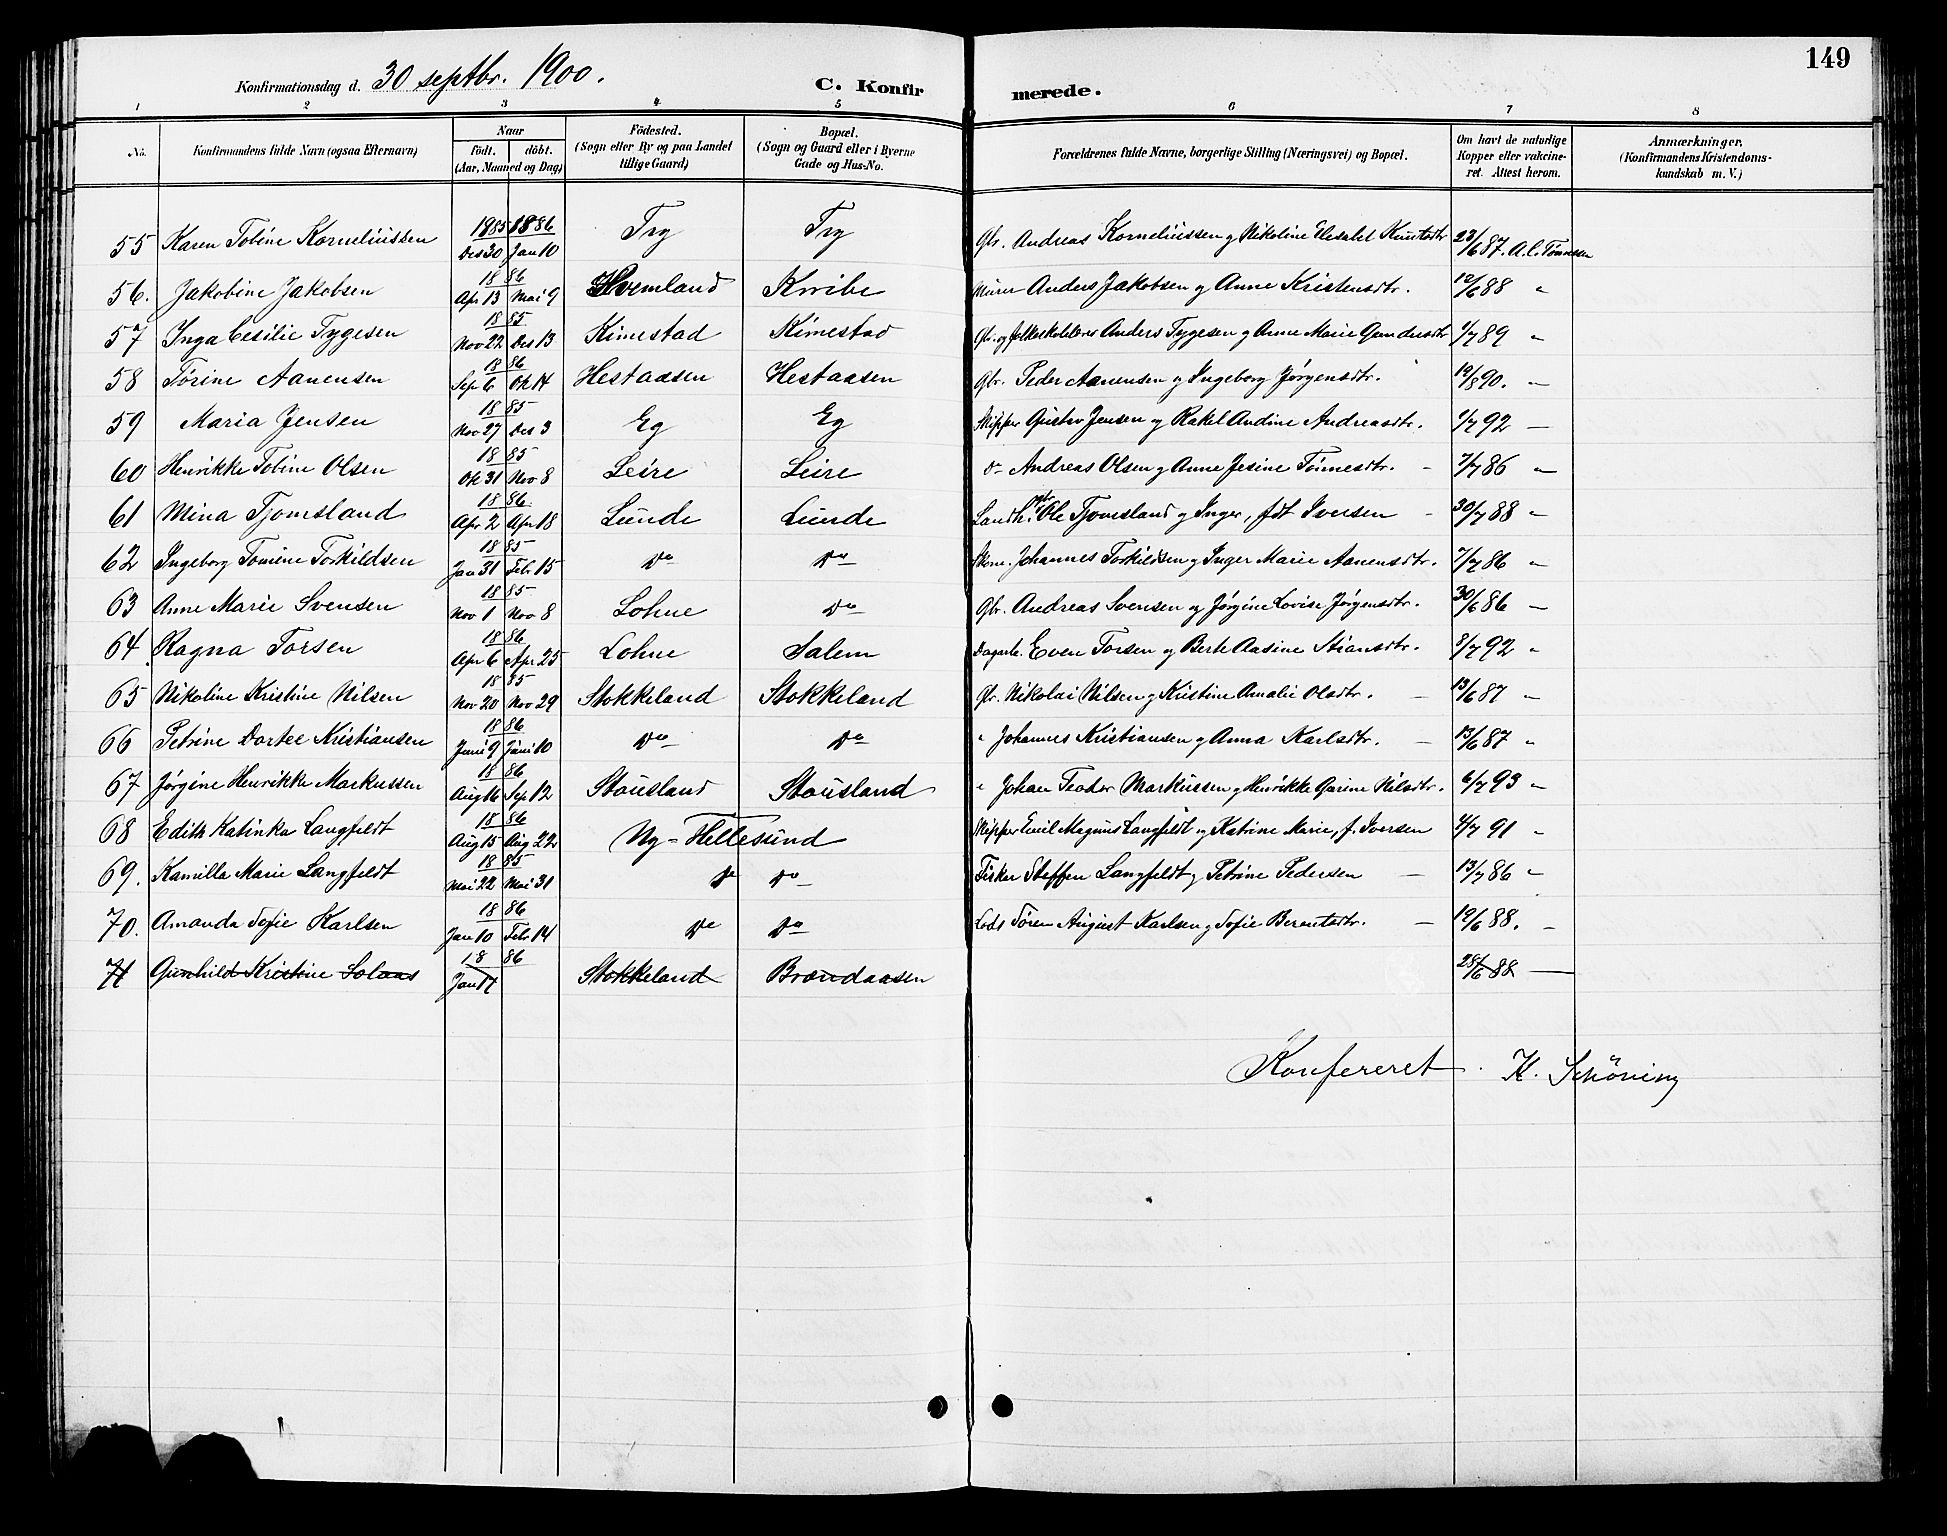 149
Konfirmationsdag d. 30 septbr. 1900. C. Konfirmerede.
1 2 3 4 5 6 7 8
No. Konfirmandens fulde Navn (ogsaa Efternavn) Naar Födt. döbt. (Aar, Maaned og Dag) Födested. (Sogn eller By og paa Landet tillige Gaard) Bopæl. (Sogn og Gaard eller i Byerne Gade og Hus-No. Forældrenes fulde Navne, borgerlige Stilling (Næringsvei) og Bopæl. Om havt de naturlige Kopper eller vakcineret. Attest herom. Anmærkninger. (Konfirmandens Kristendomskundskab m. V.)
55 Karen Tobine Korneliussen 1885 Des 30 1886 Jan 10 Try Try Gbr. Andreas Korneliussen og Nikoline Elisabet Knutsdtr 23/6 87. A. C. Tønnesen
56. Jakobine Jakobsen 18 86 Apr 13 Mai 9 Hvemland Kvribe Murer Anders Jakobsen og Anne Kristensdtr. 12/6 88 "
57 Inga Cesilie Tygesen 18 85 Nov 22 Des 13 Kimestad Kimestad Gbr. og folkeskolelærer Anders Tygesen og Anne Marie Gundersdtr 1/7 89 "
58 Tørine Aanensen 18 86 Sep 6 Okt 14 Hestaasen Hestaasen Gbr. Peder Aanensen og Ingeborg Jørgensdtr. 19/8 90. "
59 Maria Jensen 18 85 Nov 27 Des 3 Eg Eg Skipper Gustav Jensen og Rakel Andine Andreasdtr. 1/7 92 —
60 Henrikke Tobine Olsen 18 85 Ok 31 Nov 8 Leire Leire do Andreas Olsen og Anne Jesine Tønnesdtr. - 7/7 86 "
61 Mina Tjomsland 18 86 Apr 2 Apr 18 Lunde Lunde Landh. Ole Tjomsland og Inger, fdt Iversen - 30/7 88 "
62 Ingeborg Tomine Torkildsen 18 85 Jan 31 Febr 15 do do Skom. Johannes Torkildsen og Inger Marie Aanensdtr. 7/7 86 "
63 Anne Marie Svensen 18 85 Nov 1 Nov 8 Lohne do Gbr. Andreas Svensen og Jørgine Lovise Jørgensdtr. 30/6 86 —
64 Ragna Torsen 18 86 Apr 6 Apr 25 Lohne Salem Dagarb. Even Torsen og Berte Aasine Stiansdtr. 8/7 92 "
65 Nikoline Kristine Nilsen 18 85 Nov 20 Nov 29 Stokkeland Stokkeland Gbr. Nikolai Nilsen og Kristine Amalie Olsdtr. — 13/6 87 "
66 Petrine Dortee Kristiansen 18 86 Juni 9 Juni 10 do do " Johannes Kristiansen og Anna Karlsdtr. — 13/6 87 "
67 Jørgine Henrikke Markussen 18 86 Aug 16 Sep 12 Stousland Stousland " Johan Teodor Markussen og Henrikke Gurine Nilsdtr. 6/7 93 "
68 Edith Katinka Langfeldt 18 86 Aug 15 Aug 22 Ny-Hellesund Skipper Emil Magnus Langfeldt og Katrine Marie, f. Iversen 4/7 91 "
69. Kamilla Marie Langfeldt 18 85 Mai 22 Mai 31 do do Fisker Steffen Langfeldt og Petrine Pedersen — 13/7 86 "
70. Amanda Sofie Karlsen 18 86 Jan 10 Febr 14 do do Lods Søren August Karlsen og Sofie Berentsdtr. — 12/6 88. "
71 Gunhild Kristine Solaas 18 86 Jan 17 Stokkeland Brændaasen 28/6 88 —
Konfereret. K. Schöning